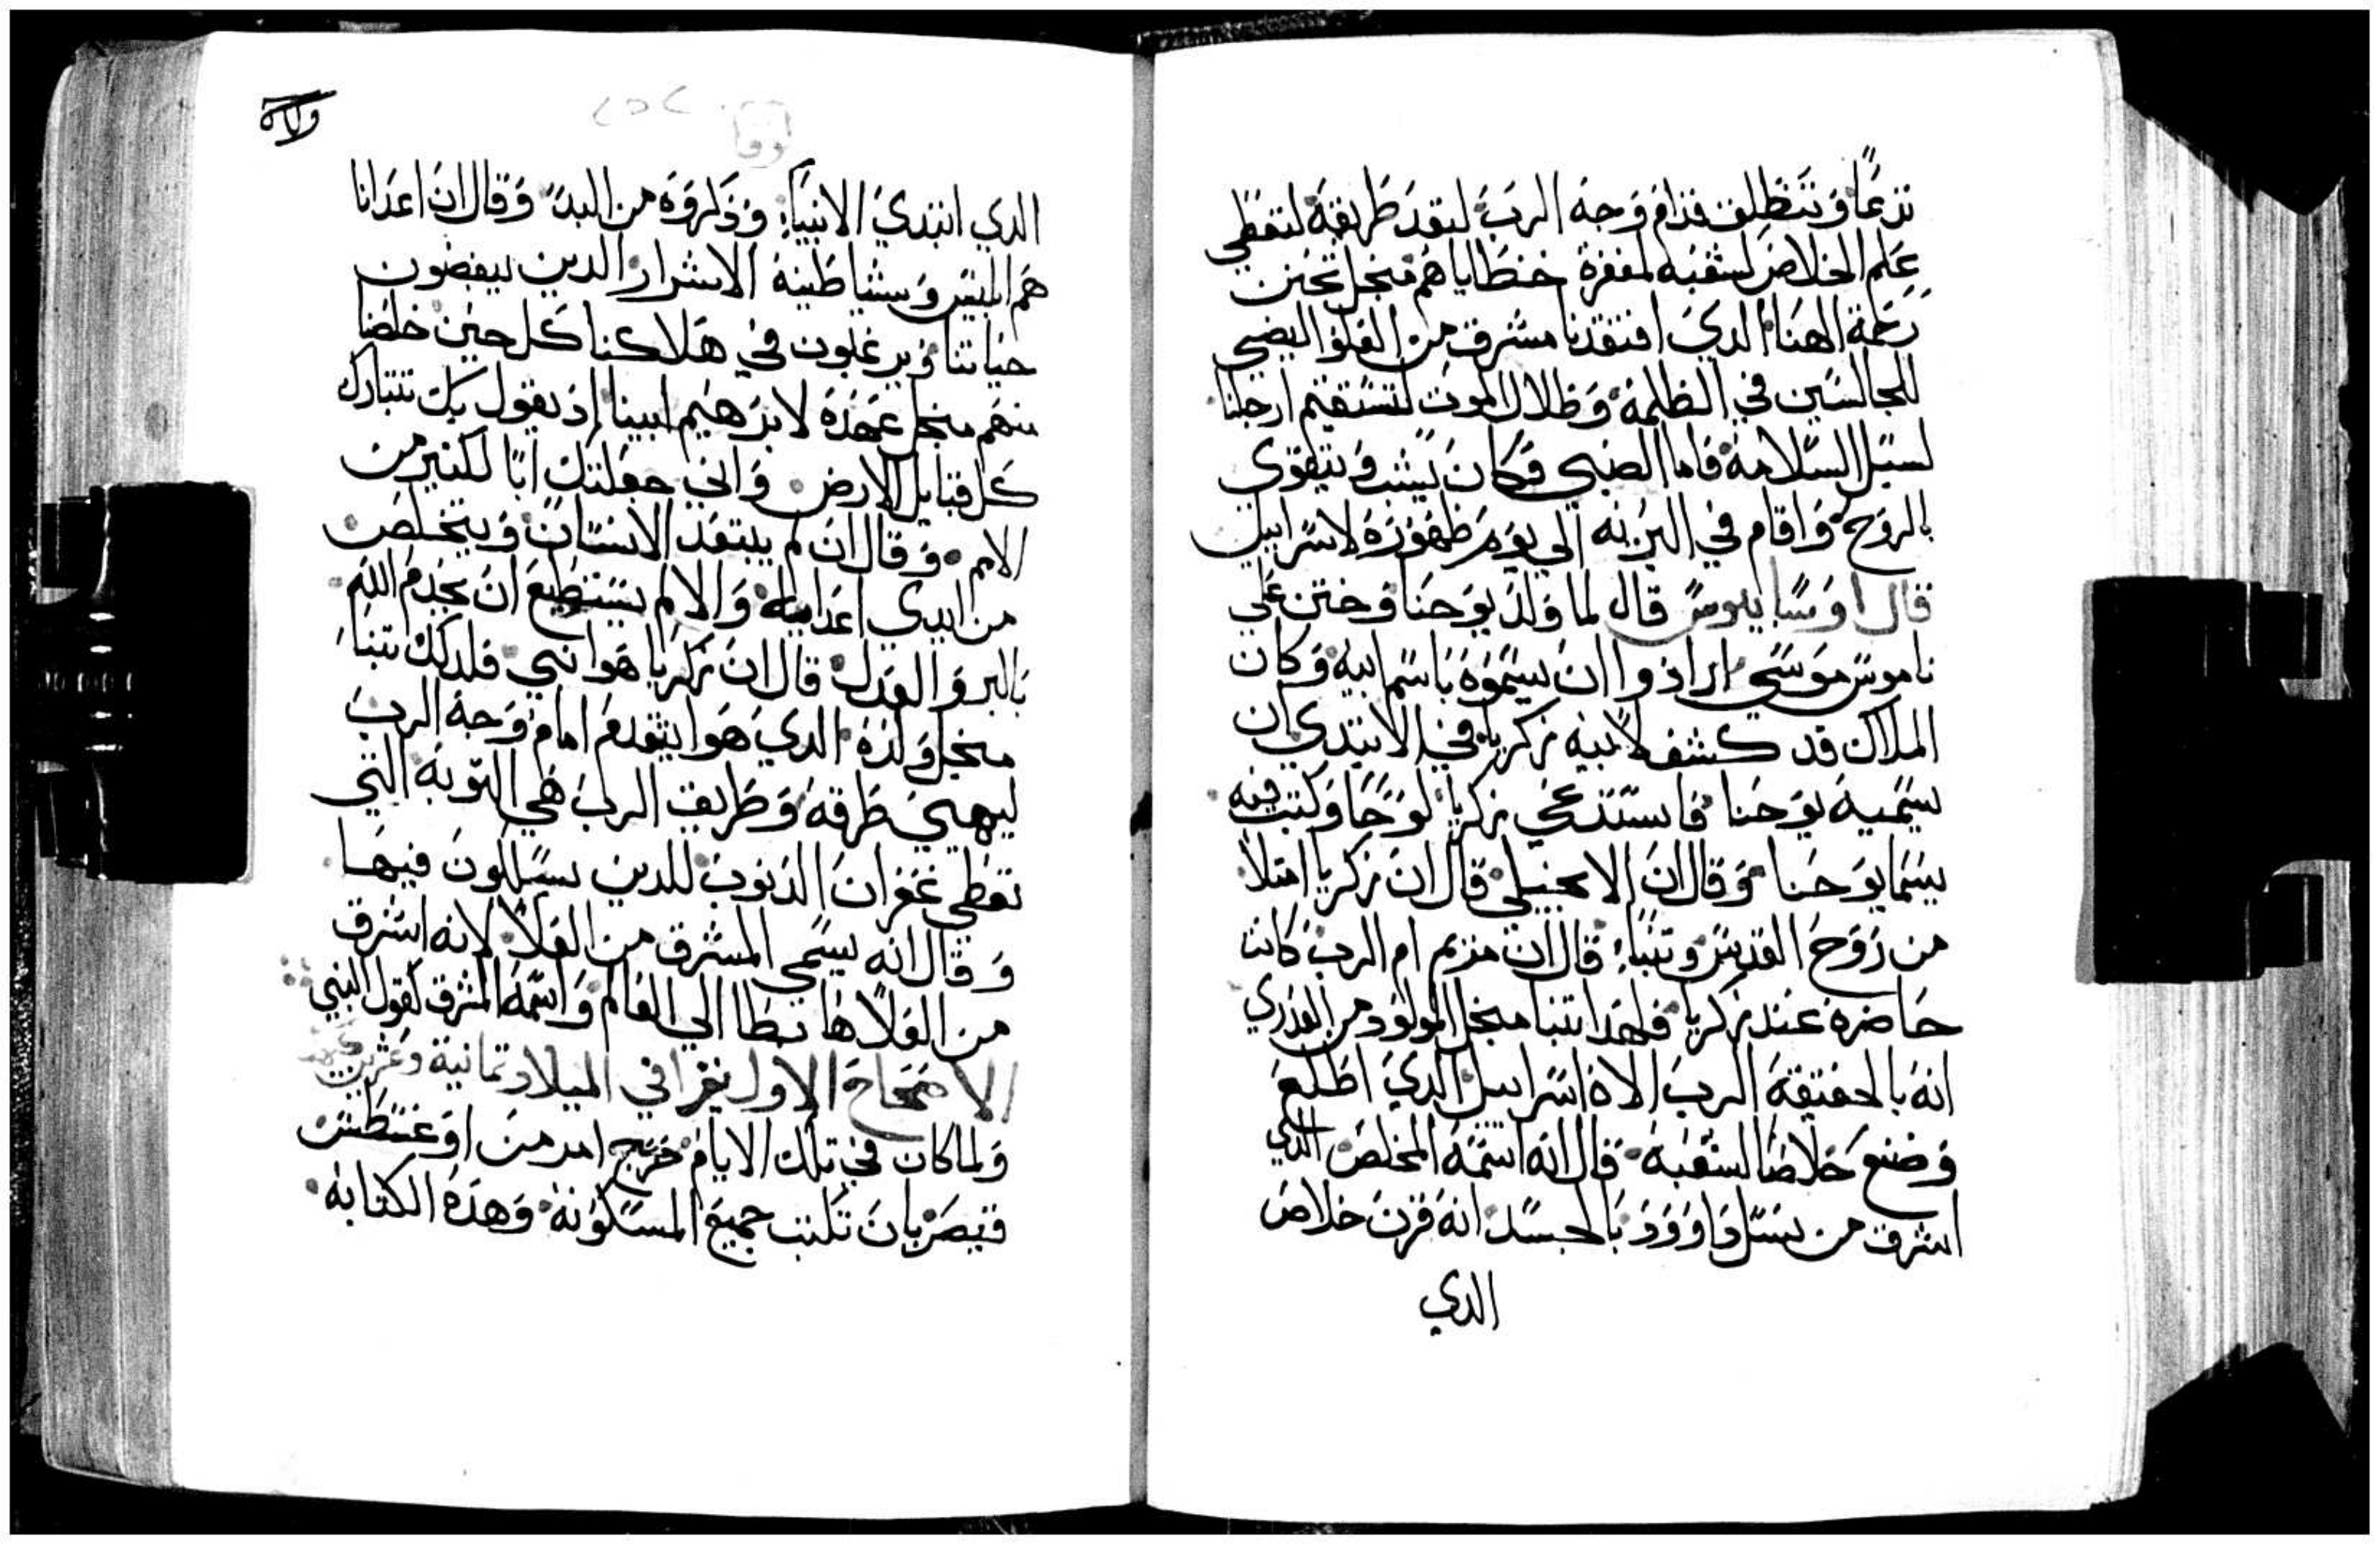 تدعا وتنطلق قدام وجه الرب لتعد طريقه لتعطي
علم الخلاص لشعبه لمغفرة خطاياهم منجل تحنن
رحمة الهنا الدي افتقدنا مشرق من العلو اليضي
للجالسين في الظلمه وظلال الموت لتستقيم ارجلنا
لسبل السلامه فاما الصبي فكان يشب ويتقوي
بالروح واقام في البريه الي يوم ظهوره لاسراييل
قال اوسابيوس قال لما ولد يوحنا وختن علي
ناموس موسي ارادوا ان يسموه باسم ابيه وكان
الملاك قد كشف لابيه زكريا في الابتدي ان
يسميه يوحنا فاستدعي زكريا لوحا وكتب فيه
يسما يوحنا وقال ان الانجيلي قال ان زكريا امتلا
من روح القدس وتنبا قال ان مريم ام الرب كانت
حاضره عند زكريا فلهدا تنبا منجل المولود من العدري
انه بالحقيقه الرب الاه اسراييل الدي اطلع
وصنع خلاصا لشعبه قال انه اسمه المخلص الدي
اشرق من نسل داوود بالجسد انه قرن خلاص
الدي
لوقا
الدي ابتدي الانبيا وذكروه من البد وقال ان اعدانا
هم ابليس وشياطينه الاشرار الدين يبغضون
حياتنا ويرغبون في هلاكنا كل حين خلصنا
منهم منجل عهده لابرهيم ابينا اد يقول بك تتبارك
كل قبايل الارض واني جعلتك ابا لكثير من
الامم وقال ان لم يبتعد الانسان ويتخلص
من ايدي اعدايه والا لم يستطيع ان يخدم الله
بالبر والعدل قال ان زكريا هوا نبي فلدلك تنبا
منجل ولده الدي هوا يتقدم امام وجه الرب
ليهيي طرقه وطريق الرب هي التوبه التي
تعطي غفران الدنوب للدين يسلكون فيها
وقال انه يسمي المشرق من العلا لانه اشرق
من العلا هابطا الي العالم واسمه المشرق كقول النبي
الاصحاح الاول يقرا في الميلاد تمانية وعشرين
ولما كان في تلك الايام خرج امر من اوغسطس
قيصر بان تكتب جميع المسكونه وهده الكتابه